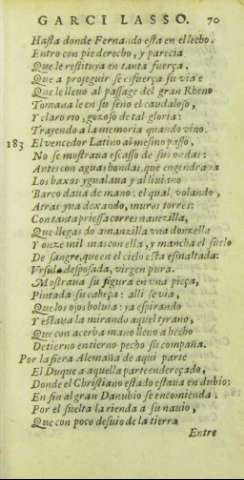 GARCI LASSO. 70
Hasta donde Fernando esta en el lecho.
Entro con pie derecho, y parecia
Que le restituya en tanta fuerça,
Que a proseguir se esfuerça su via e
Que le lleuo al passage del gran Rheno
Tomaua le en su seno el caudaloso,
Y claro rio, gozoso de tal gloria:
Trayendo a la memoria quando vino.
183 El vencedor Latino al mesmo passo,
No se mostraua escasso de sus ondas:
Antes con aguas hondas, que engendraua
Los baxos ygualaua y al liuiano
Barco daua de mano: el qual, volando,
Atras yua dexando, muros torres:
Con tanta priessa corres nauezilla,
Que llegas do amanzilla vna donzella
Y onze mil mas con ella, y mancha el suelo
De sangre, que en el cielo esta esmaltada:
Vrsula desposada, virgen pura.
Mostraua su figura en vna pieça,
Pintada su cabeça: alli se via,
Que los ojos boluia: ya espirando
Y estaua la mirando aquel tyrano,
Que con acerba mano lleuo a hecho
De tierno en tierno pecho su compaña.
Por la fiera Alemaña de aqui parte
El Duque a aquella parte endereçado,
Donde el Christiano estado estaua en dubio:
En fin al gran Danubio se encomienda:
Por el suelta la rienda a su nauio,
Que con poco desuio de la tierra
Entre